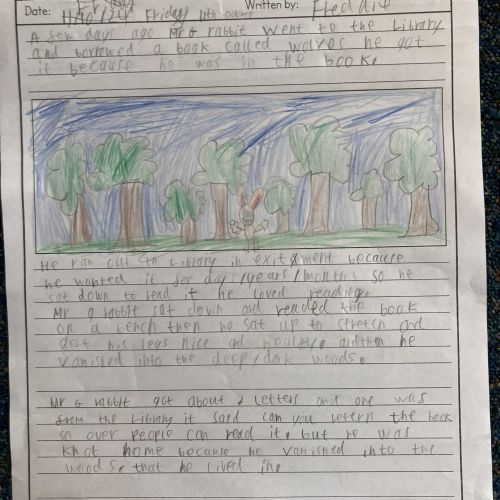 Date: Friday 11th October Written by: Freddie
A few days ago Mr G rabbit went to the Library
and borrowed a book called wolves he got
it because he was in the book.
He ran out the Library in exitement because
he wanted it for days/years/months so he
sat down to read it he loved reading.
Mr G rabbit sat down and readed the book
on a bench then he sat up to stretch and
got his legs nice and healthy. and then he
vanished into the deep/dark woods.
Mr G rabbit got about 2 letters and one was
from the Library it said can you letern the book
so over people can read it. but he was
khat home because he vanished into the
woods. that he lived in.